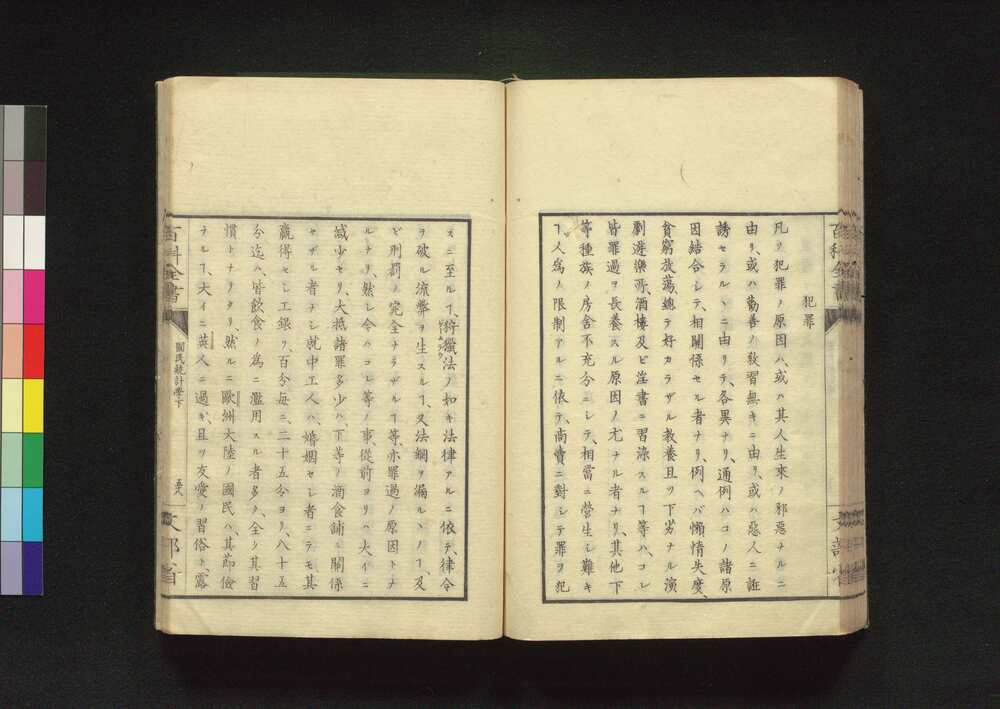 犯罪
凡ソ犯罪ノ原因ハ、或ハ其人生來ノ邪惡ナルニ
由リ、或ハ勸善ノ敎習無キニ由リ、或ハ惡人ニ誑
誘セラルヽニ由リテ、各異ナリ、通例ハコノ諸原
因結合シテ、相關係セル者ナリ、例ヘバ懶惰失度、
貧窮放蕩、總テ好カラザル敎養且ツ下劣ナル演
劇遊樂哥、酒樓及ビ淫書ニ習染スルヿ等ハ、コレ
皆罪過ヲ長養スル原因ノ尤ナル者ナリ、其他下
等種族ノ房舍不充分ニシテ、相當ニ營生シ難キ
ヿ、人爲ノ限制アルニ依テ、商賣ニ對シテ罪ヲ犯
スニ至ルヿ、狩獵法ノ如キ法律アルニ依テ、律令
ヲ破ル流弊ヲ生スルヿ、又法網ヲ漏ルヽノヿ、及
ビ刑罰ノ完全ナラザルヿ等、亦罪過ノ原因トナ
ルナリ、然シ今ハコレ等ノ事、從前ヨリハ大イニ
減少セリ、大抵諸罪多少ハ、下等ノ酒食鋪ニ關係
セザル者ナシ、就中工人ハ、婚姻セシ者ニテモ、其
贏得セシ工銀ノ百分每ニ、二十五分ヨリ、八十五
分迄ハ、皆飮食ノ爲ニ濫用スル者多ク、全ク其習
慣トナリタリ、然ルニ歐洲大陸ノ國民ハ、其節儉
ナルヿ、大イニ英人ニ過キ、且ツ友愛ノ習俗ト、露
百科全書
國民統計學下
五八
文部省